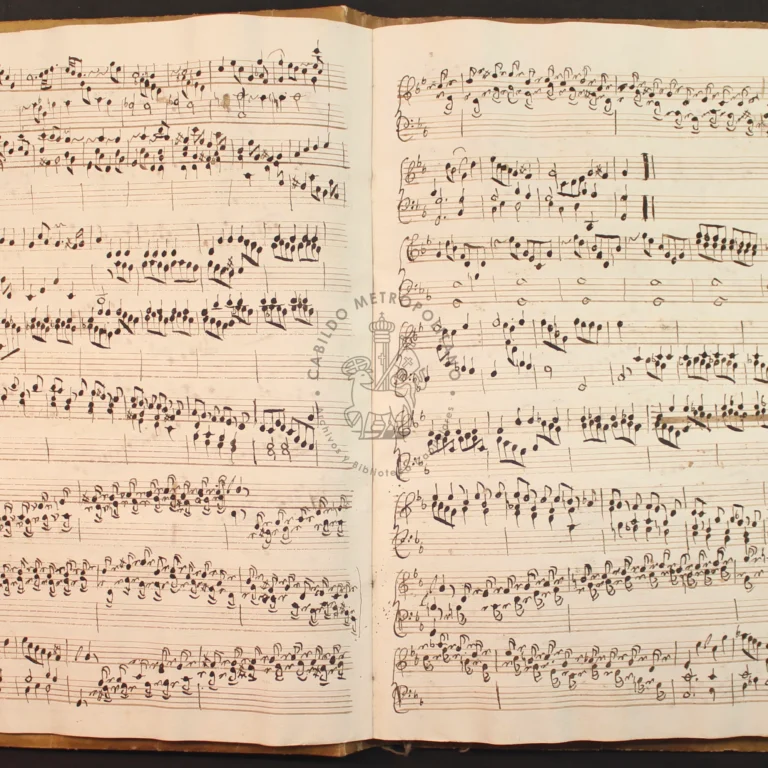 CABILDO METROPOLITANO
Archivos y Bibliotecas